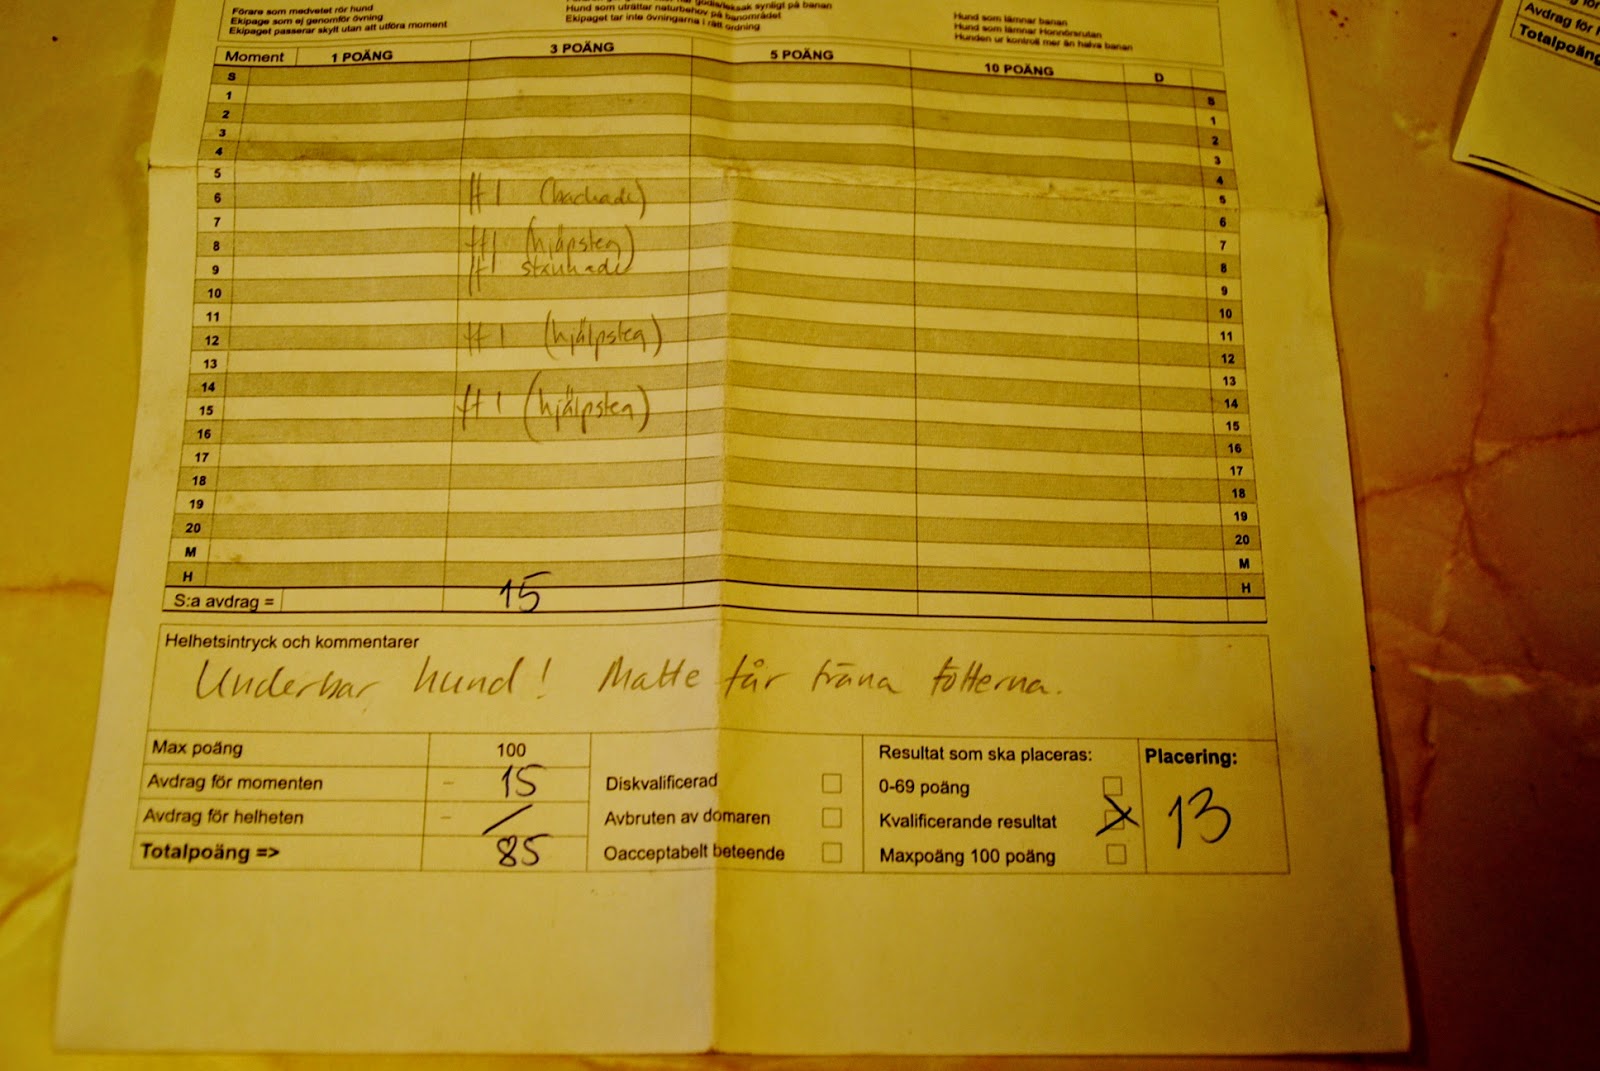 Förare som medvetet rör hund
Ekipage som ej genomför övning
Ekipaget passerar skylt utan att utföra moment
synligt på banan
Hund som uträttar naturbehov på banområdet
Ekipaget tar inte övningarna i rätt ordning
Hund som lämnar banan
Hund som lämnar Honnörsrutan
Hunden ur kontroll mer än halva banan
Moment 1 POÄNG 3 POÄNG 5 POÄNG 10 POÄNG D
S S
1 1
2 2
3 3
4 4
5 5
6 #1 (backade) 6
7 7
8 #1 (hjälpsteg) 8
9 #1 stannade 9
10 10
11 11
12 #1 (hjälpsteg) 12
13 13
14 14
15 #1 (hjälpsteg) 15
16 16
17 17
18 18
19 19
20 20
M M
H H
S:a avdrag = 15
Helhetsintryck och kommentarer
Underbar hund! Matte får träna fötterna.
Max poäng 100
Avdrag för momenten - 15
Avdrag för helheten - /
Totalpoäng => 85
Diskvalificerad
Avbruten av domaren
Oacceptabelt beteende
Resultat som ska placeras:
0-69 poäng
Kvalificerande resultat X
Maxpoäng 100 poäng
Placering:
13
Avdrag för
Totalpoäng